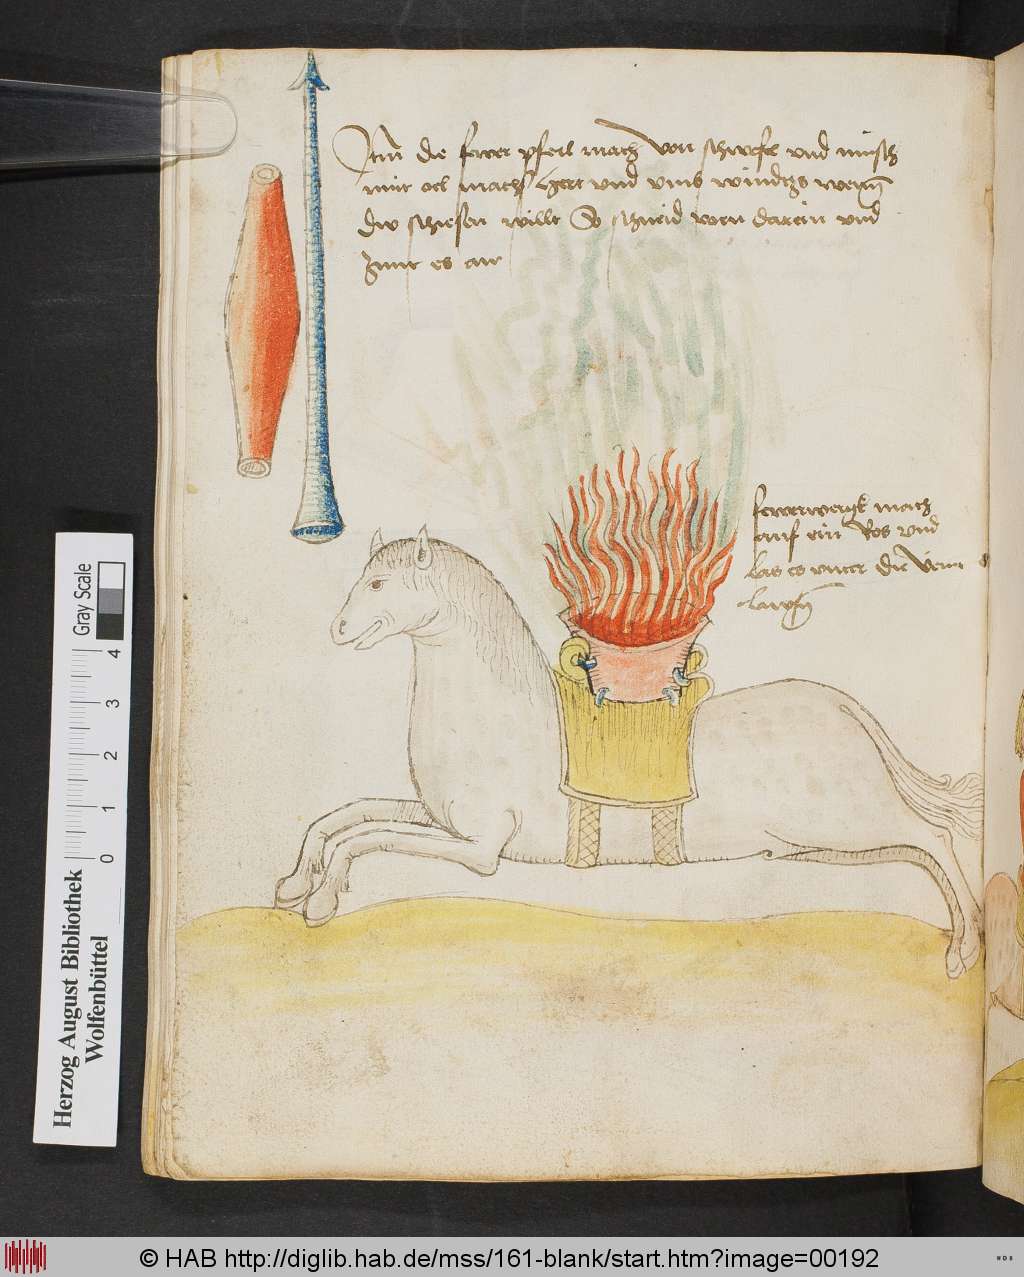 Itm die fewer pfeil mach von schwefl und müsch
mit oel mach hert und umb windtzs wenn
dw schiesen willt So schneid vorn darein und
zunt es an
fewrwergk mach
auf ein Ros und
las es unter die veint
lawffn
Gray Scale
4
3
2
1
0
Herzog August Bibliothek
Wolfenbüttel
© HAB http://diglib.hab.de/mss/161-blank/start.htm?image=00192